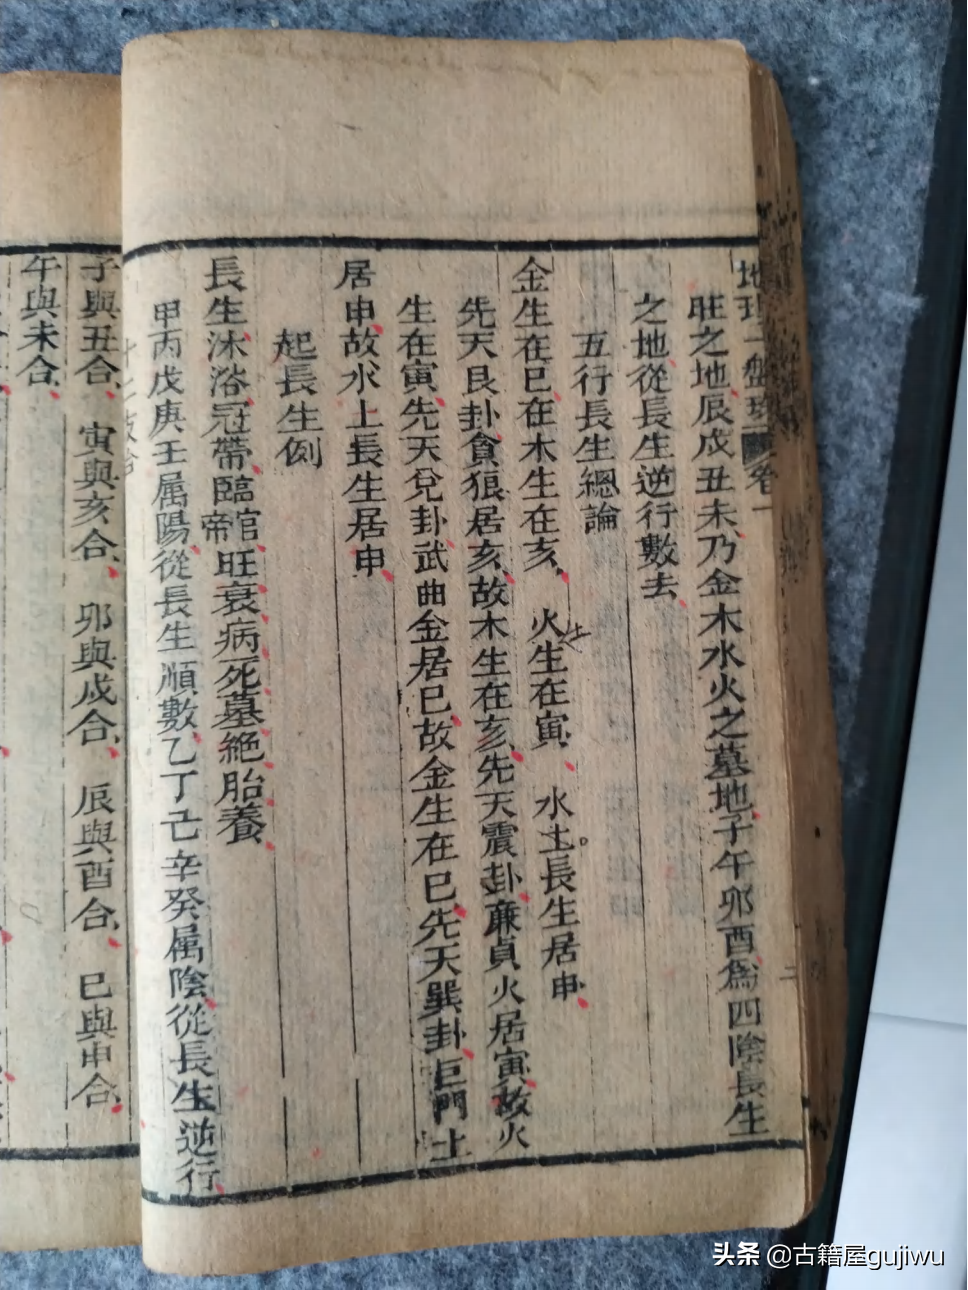 地理一盤珠 卷一
旺之地辰戍丑未乃金木水火之墓地子午卯酉爲四陰長生
之地從長生逆行數去
五行長生總論
金生在巳在木生在亥 火生在寅 水土長生居申
先天艮卦貪狼居亥故木生在亥先天震卦廉貞火居寅故火
生在寅先天兌卦武曲金居巳故金生在巳先天巽卦巨門土
居申故水土長生居申
起長生例
長生沐浴冠帶臨官帝旺衰病死墓絕胎養
甲丙戊庚壬属陽從長生順數乙丁己辛癸属陰從長生逆行
子與丑合 寅與亥合 卯與戍合 辰與酉合 巳與申合
午與未合
头条 @古籍屋gujiwu